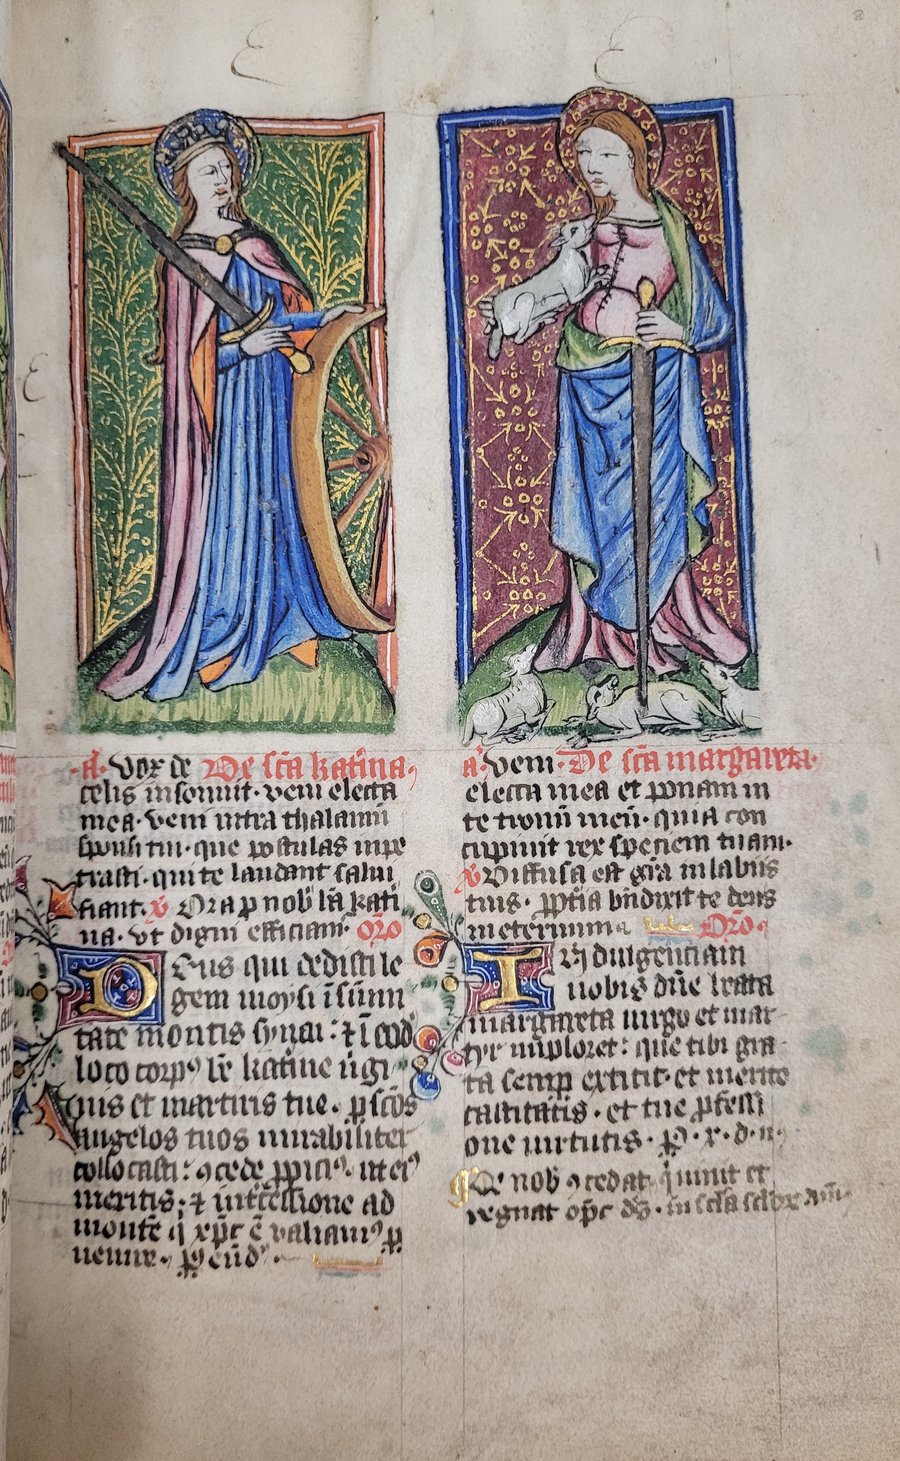 A. Vox de De scã katina.
celis insonuit. veni electa
mea. veni intra thalamũ
sponsi tui. que postulas inpe
trasti. qui te laudant salui
fiant. v Ora p nob bã kati
na. vt digni efficiam̃ Orõ
Deus qui dedisti le
gem moysi ĩ sũm
tate montis synai: et ĩ eod
loco corpꝰ bẽ katine ũgi
nis et martiris tue. p scõs
angelos tuos mirabiliter
collocasti: ꝯcede ꝓpiciꝰ. ut eiꝰ
meritis; et intercessione ad
montẽ q xpc ẽ valiamꝰ p
uenire. p eũd
a. Veni. De scã margareta.
electa mea et ponam in
te tronũ meũ. quia con
cupiuit rex speciem tuam.
v Diffusa est grã in labiis
tuis. ꝓptia bñdixit te deus
in eternum. Orõ.
Indulgenciam
nobis dñe beata
margareta uirgo et mar
tyr imploret: que tibi gra
ta semp extitit. et merito
castitatis. et tue ꝓfessi
one uirtutis. P. x. d. n.
nob ꝯcedat q uiuit et
regnat opc ds. in scła scłoꝝ